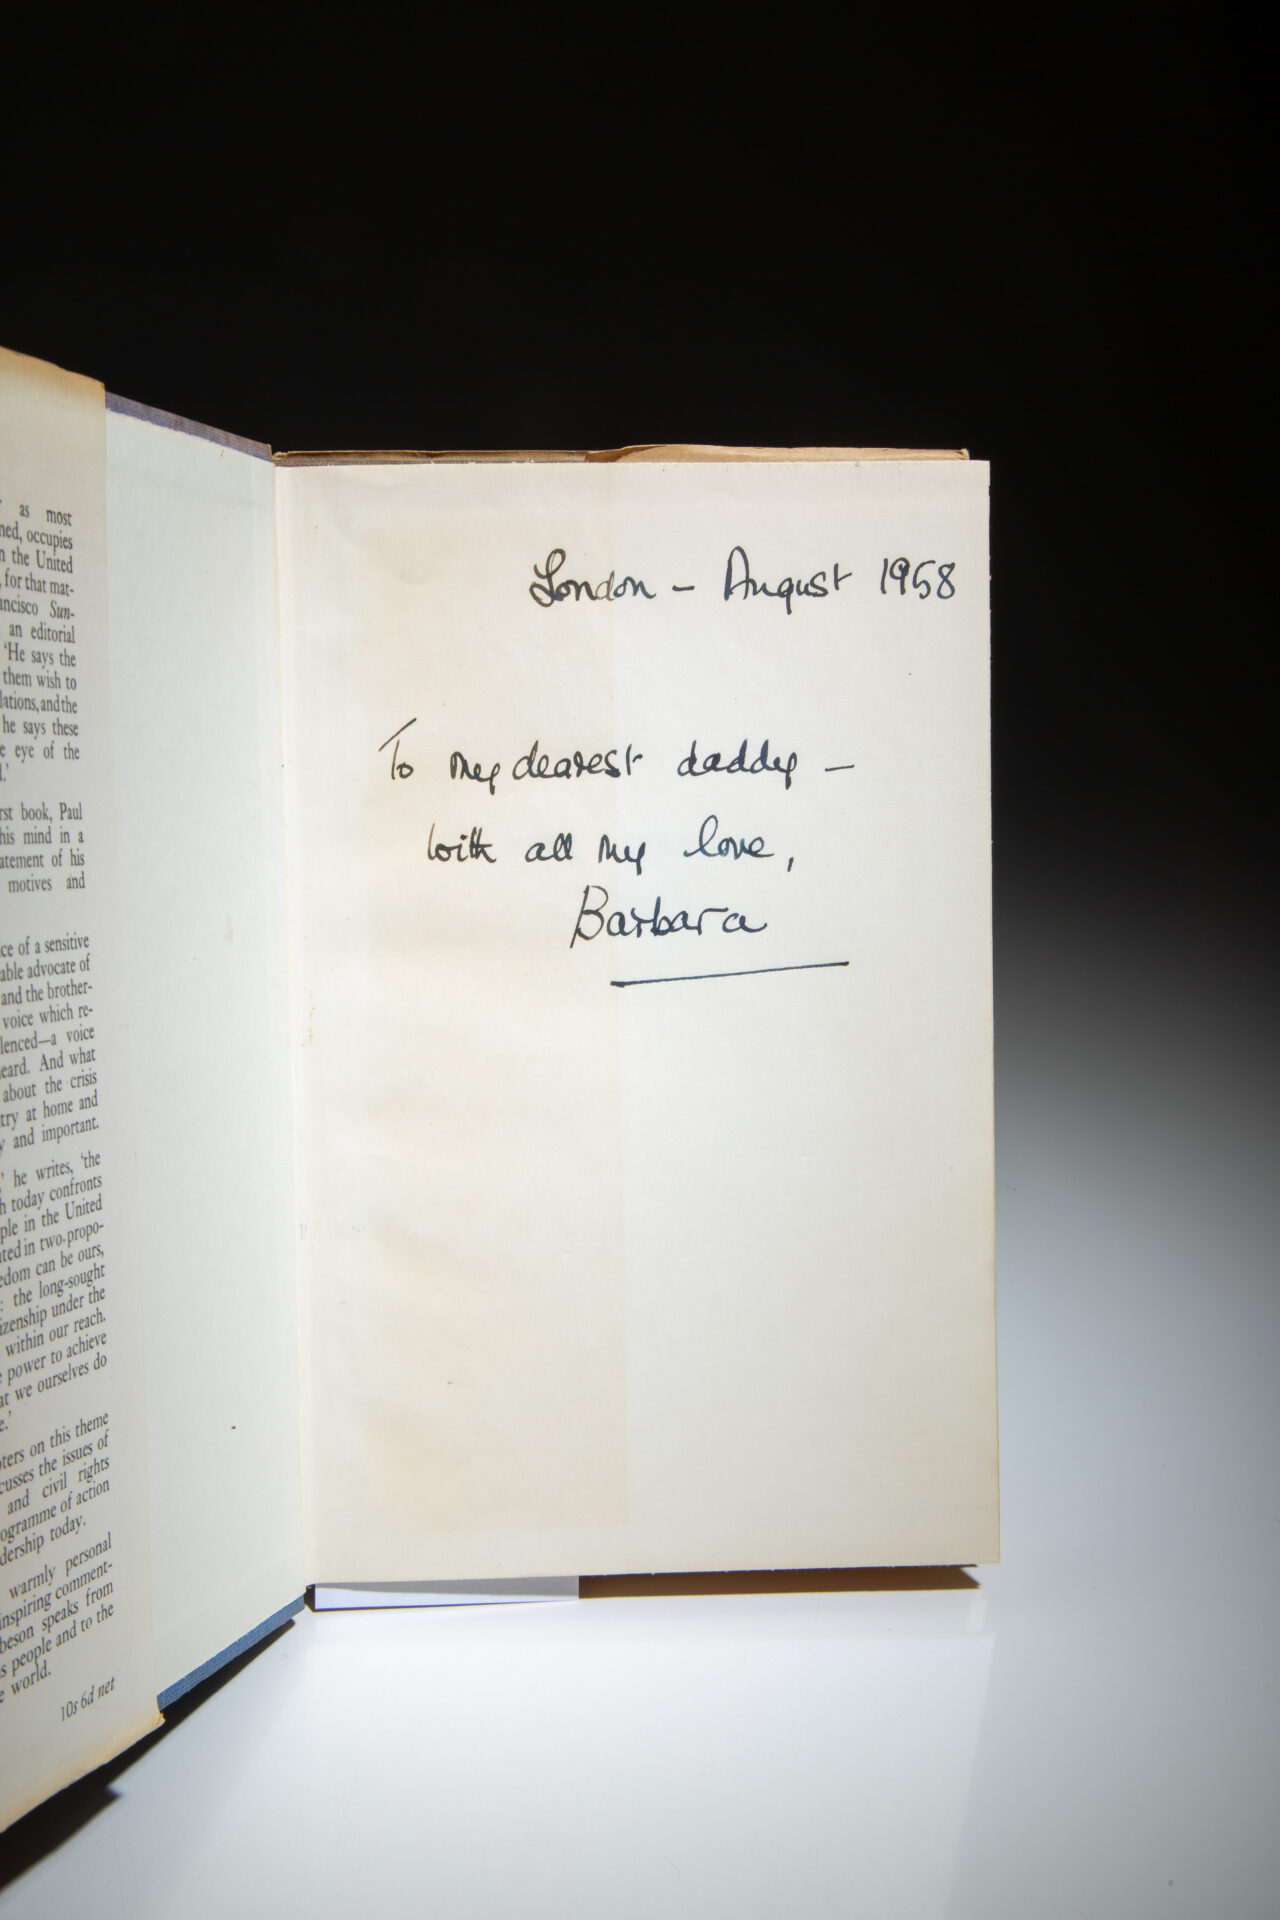 as most
ned, occupies
n the United
, for that mat-
ancisco Sun-
an editorial
'He says the
them wish to
lations, and the
he says these
e eye of the
l.'
rst book, Paul
his mind in a
atement of his
motives and
ce of a sensitive
able advocate of
and the brother-
voice which re-
lenced—a voice
eard. And what
about the crisis
try at home and
y and important.
,' he writes, 'the
h today confronts
ple in the United
ated in two propo-
edom can be ours,
: the long-sought
izenship under the
within our reach.
e power to achieve
at we ourselves do
e.'
pters on this theme
cusses the issues of
and civil rights
ogramme of action
dership today.
warmly personal
inspiring comment-
beson speaks from
s people and to the
e world.
10s 6d net
London – August 1958
To my dearest daddy –
with all my love,
Barbara